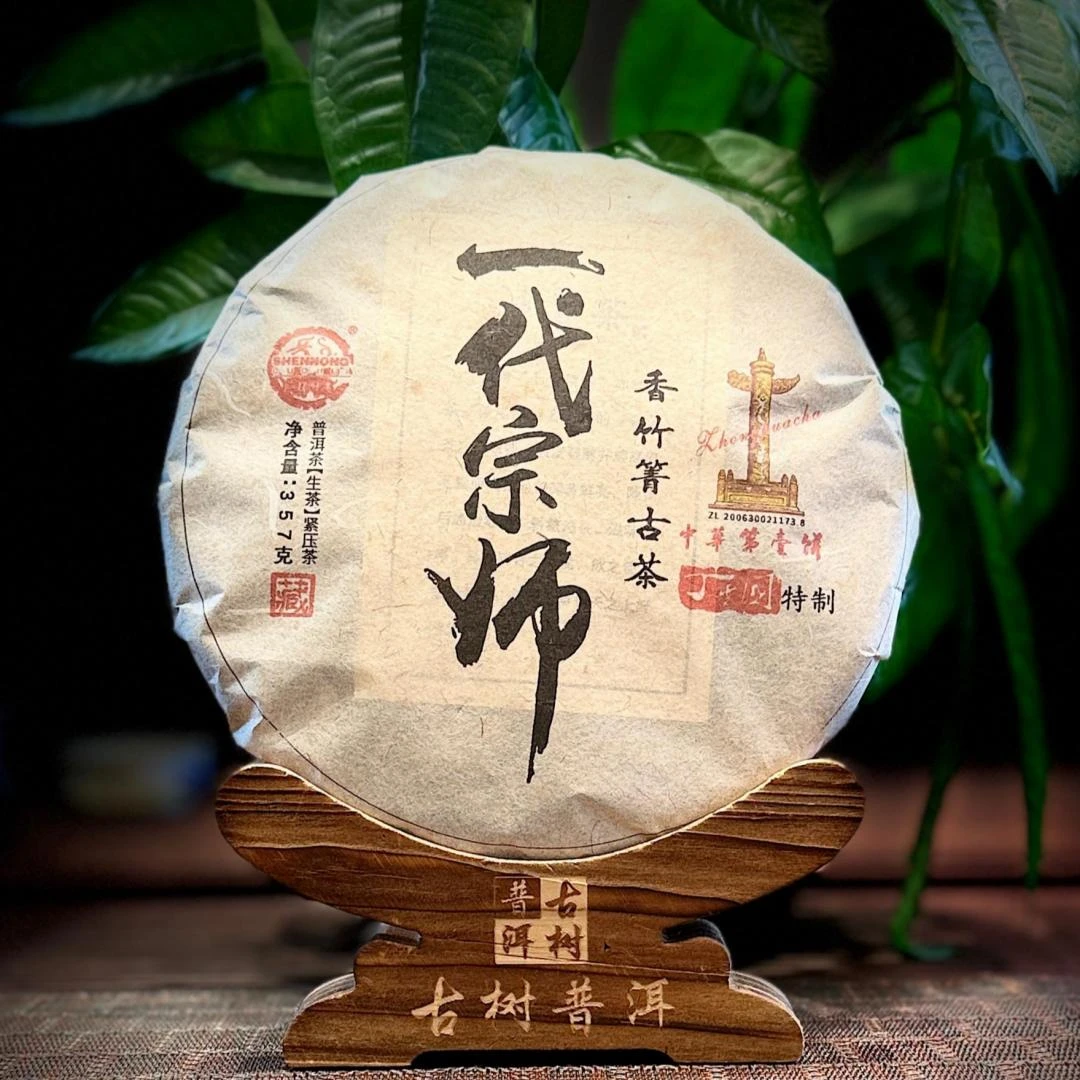 一代宗师
香竹箐古茶
Zhonghuacha
ZL 200630021173.8
中华第壹饼
特制
SHENNONG
®
普洱茶【生茶】紧压茶
净含量:357克
藏
古树
普洱
古树普洱